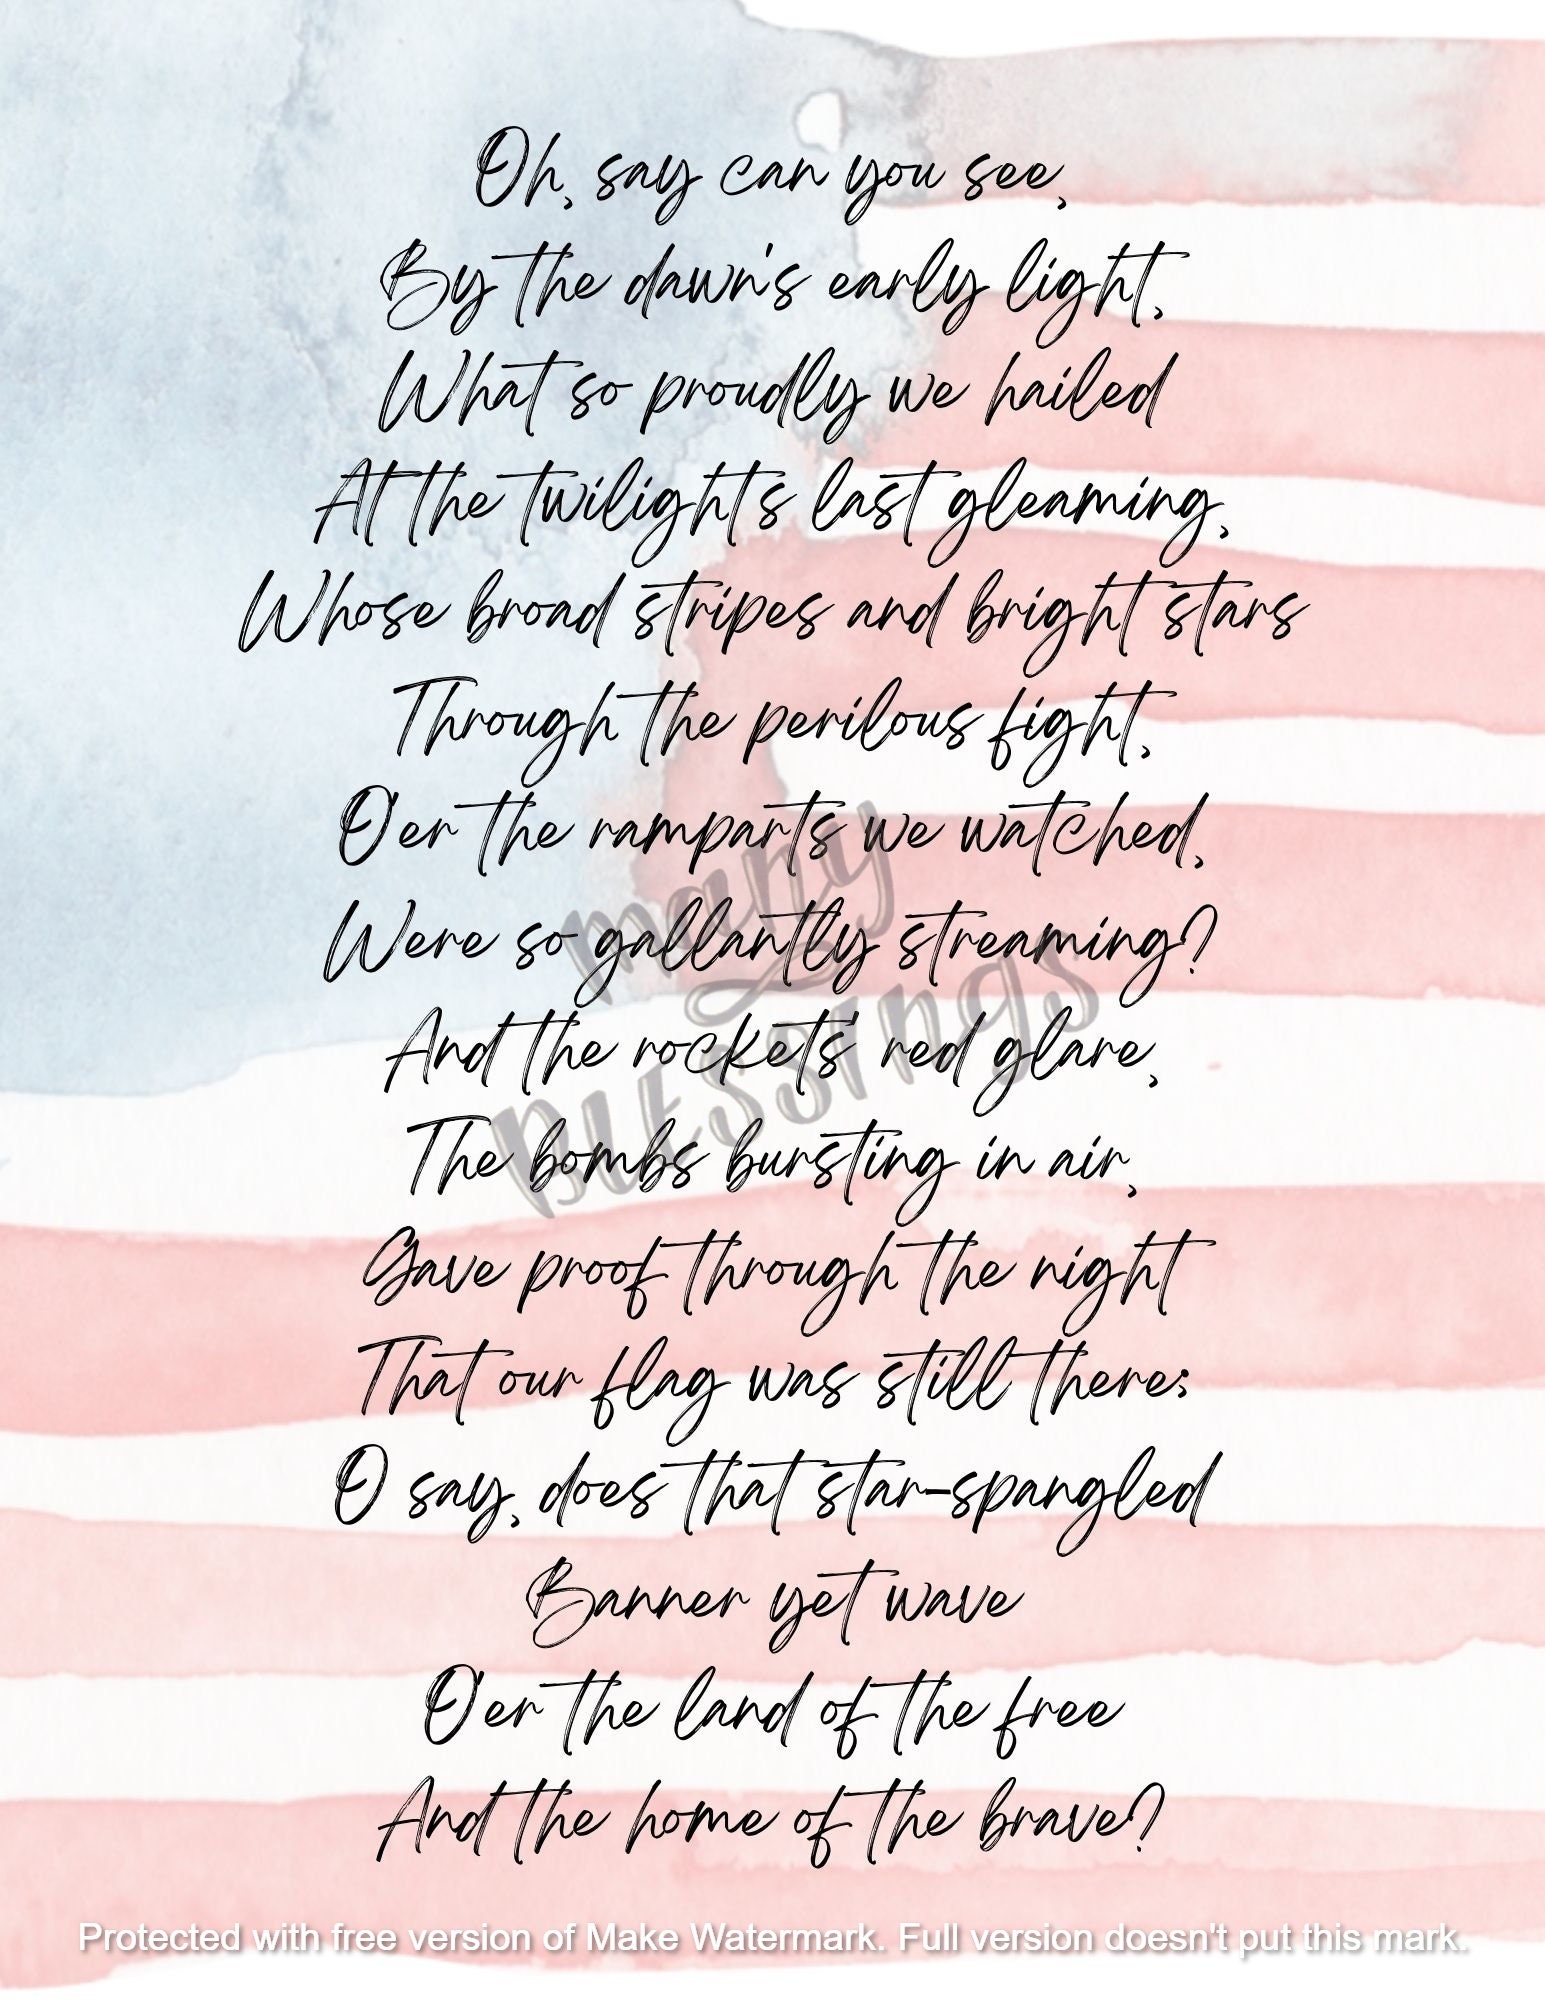 Oh, say can you see,
By the dawn's early light,
What so proudly we hailed
At the twilight's last gleaming,
Whose broad stripes and bright stars
Through the perilous fight,
O'er the ramparts we watched,
Were so gallantly streaming?
And the rockets' red glare,
The bombs bursting in air,
Gave proof through the night
That our flag was still there;
O say, does that star-spangled
Banner yet wave
O'er the land of the free
And the home of the brave?
many
BLESSINGS
Protected with free version of Make Watermark. Full version doesn't put this mark.